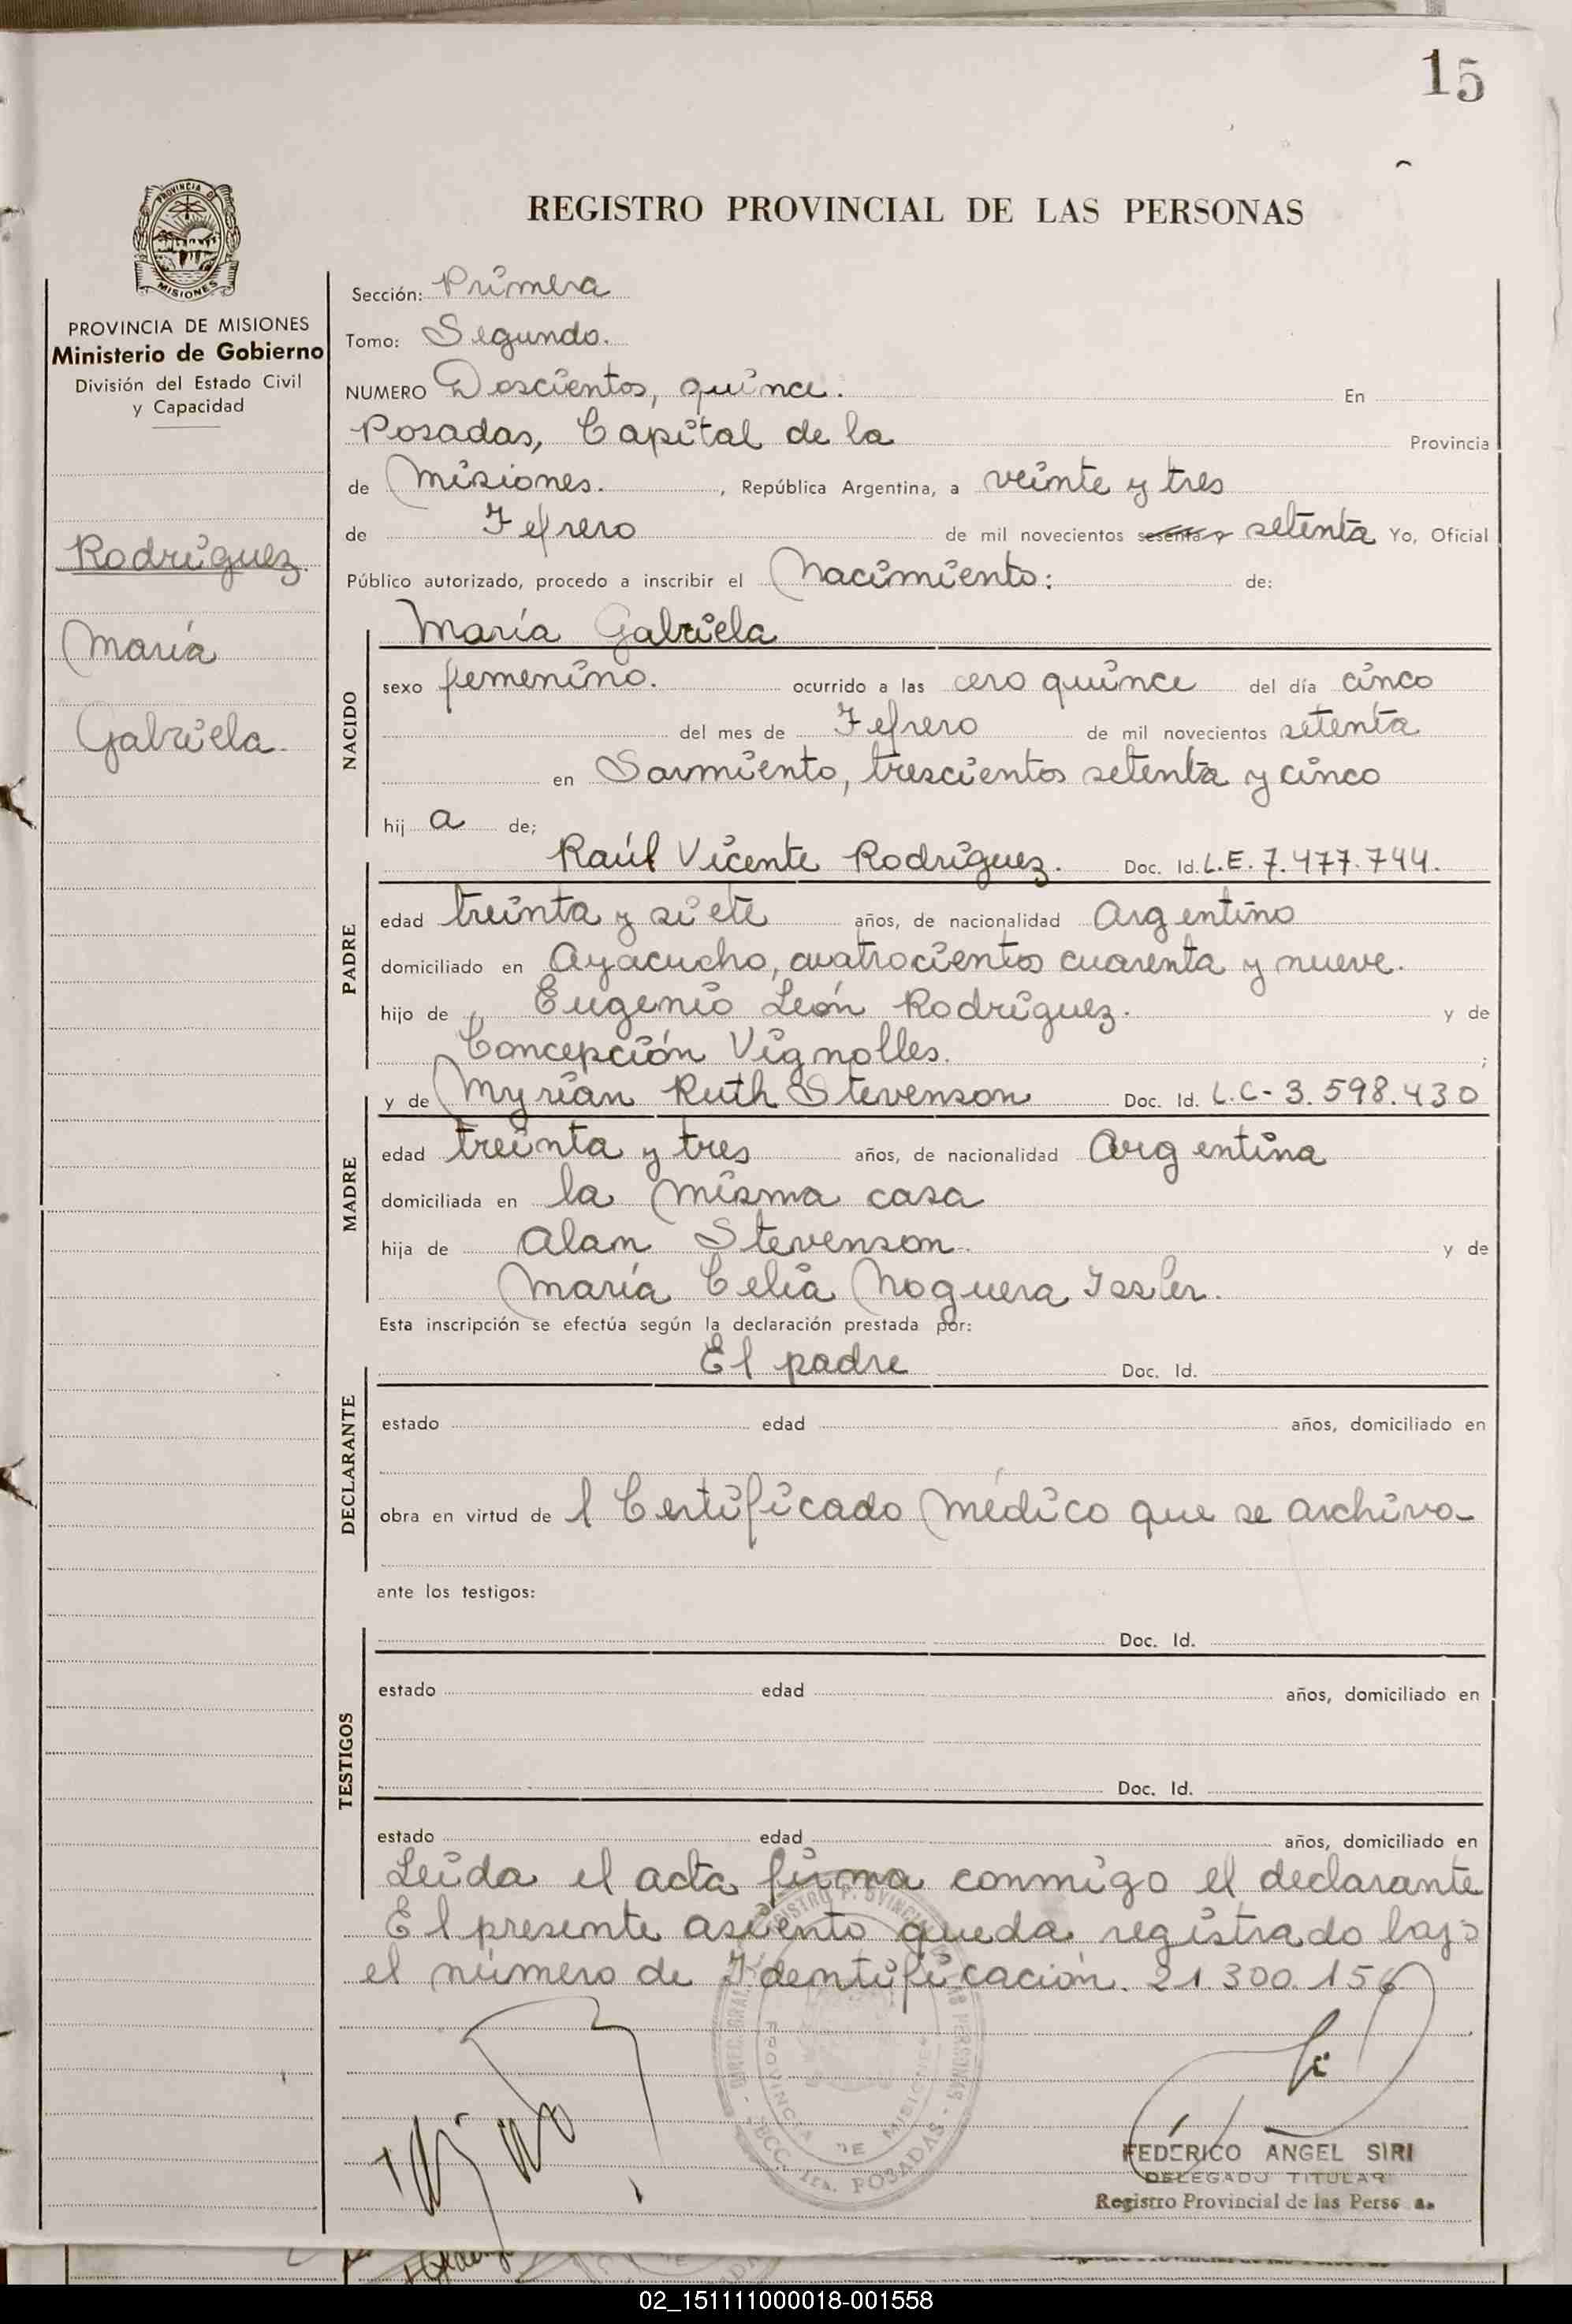 15
REGISTRO PROVINCIAL DE LAS PERSONAS
PROVINCIA DE MISIONES
PROVINCIA DE MISIONES
Ministerio de Gobierno
División del Estado Civil
y Capacidad
Rodríguez.
María
Gabriela.
Sección: Primera
Tomo: Segundo.
NUMERO Doscientos, quince. En
Posadas, Capital de la Provincia
de Misiones. , República Argentina, a veinte y tres
de Febrero de mil novecientos sesenta y setenta Yo, Oficial
Público autorizado, procedo a inscribir el Nacimiento: de:
NACIDO
María Gabriela
sexo femenino. ocurrido a las cero quince del día cinco
del mes de Febrero de mil novecientos setenta
en Sarmiento, trescientos setenta y cinco
hij a de;
PADRE
Raúl Vicente Rodríguez. Doc. Id. L.E. 7.477.744.
edad treinta y siete años, de nacionalidad Argentino
domiciliado en Ayacucho, cuatrocientos cuarenta y nueve.
hijo de Eugenio León Rodríguez. y de
Concepción Vignolles. ;
MADRE
y de Myrian Ruth Stevenson Doc. Id. L.C- 3.598.430
edad treinta y tres años, de nacionalidad Argentina
domiciliada en la misma casa
hija de Alan Stevenson. y de
María Celia Noguera Isler.
Esta inscripción se efectúa según la declaración prestada por:
DECLARANTE
El padre Doc. Id.
estado edad años, domiciliado en
obra en virtud de l Certificado médico que se archiva-
ante los testigos:
TESTIGOS
Doc. Id.
estado edad años, domiciliado en
Doc. Id.
estado edad años, domiciliado en
Leida el acta firma conmigo el declarante
El presente asiento queda registrado bajo
el número de Identificación. 21.300.156
DIREC. GRAL. REGISTRO PROVINCIAL DE LAS PERSONAS
PROVINCIA DE MISIONES
- SECC. 1ra. POSADAS -
FEDERICO ANGEL SIRI
DELEGADO TITULAR
Registro Provincial de las Perso as
02_151111000018-001558